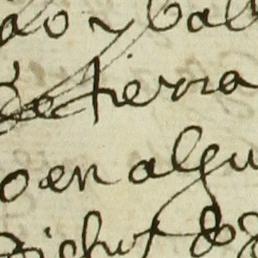 do y bal
de tierra
o en algu
dichos de